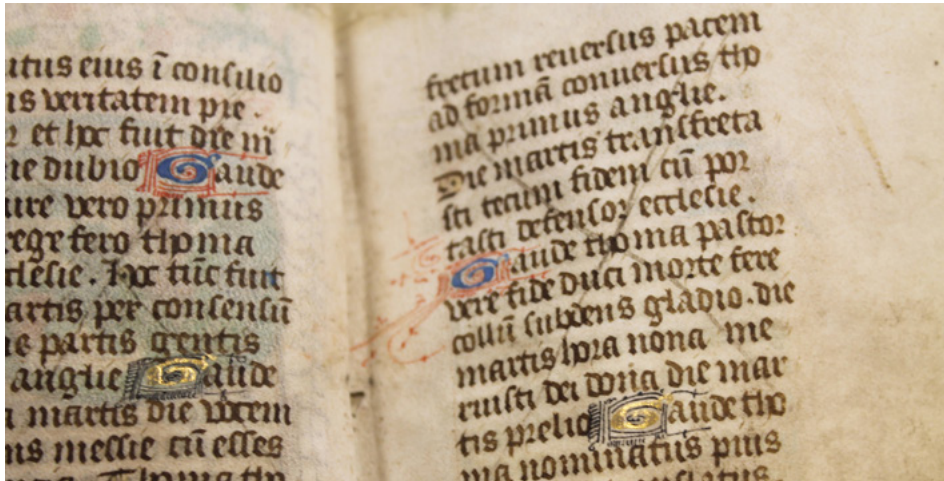 itus eius ī consilio
is veritatem pie.
et hoc fiut die m
ie dubio Gaude
ure vero primus
rege fero thoma
clesie. hoc tūc fiut
artis per consensū
e partis gentis
anglie Gaude
martis die vocem
ns messie cū esses
fretum reuersus pacem
ad formā conuersus tho
ma primus anglie.
Die martis transfreta
sti tecum fidem cū por
tasti defensor ecclesie.
Gaude thoma pastor
vere fide duci morte fere
collū subdens gladio. die
martis hora nona me
ruisti dei dona die mar
tis prelio Gaude tho
ma nominatus pius